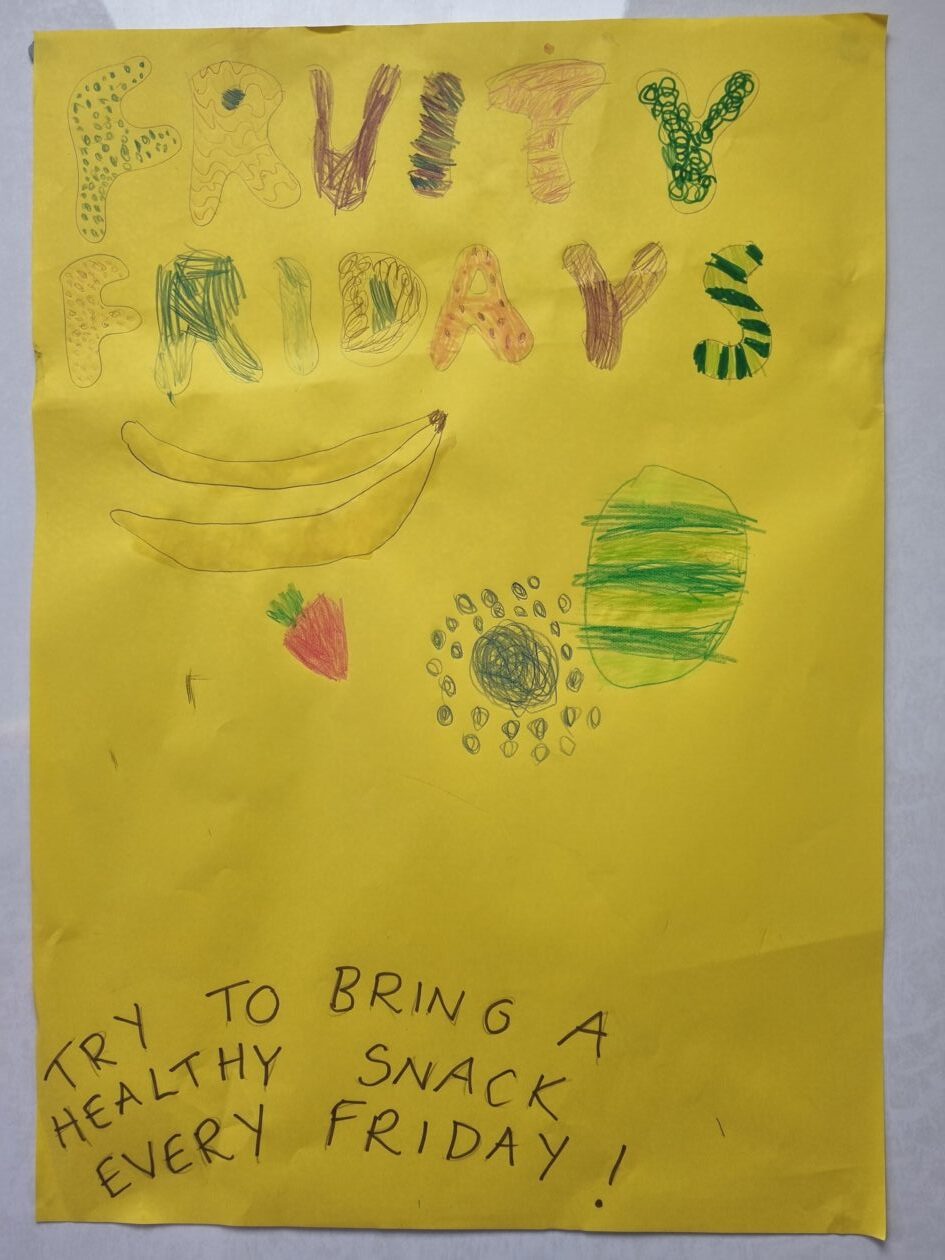 FRUITY
FRIDAYS
TRY TO BRING A
HEALTHY SNACK
EVERY FRIDAY!